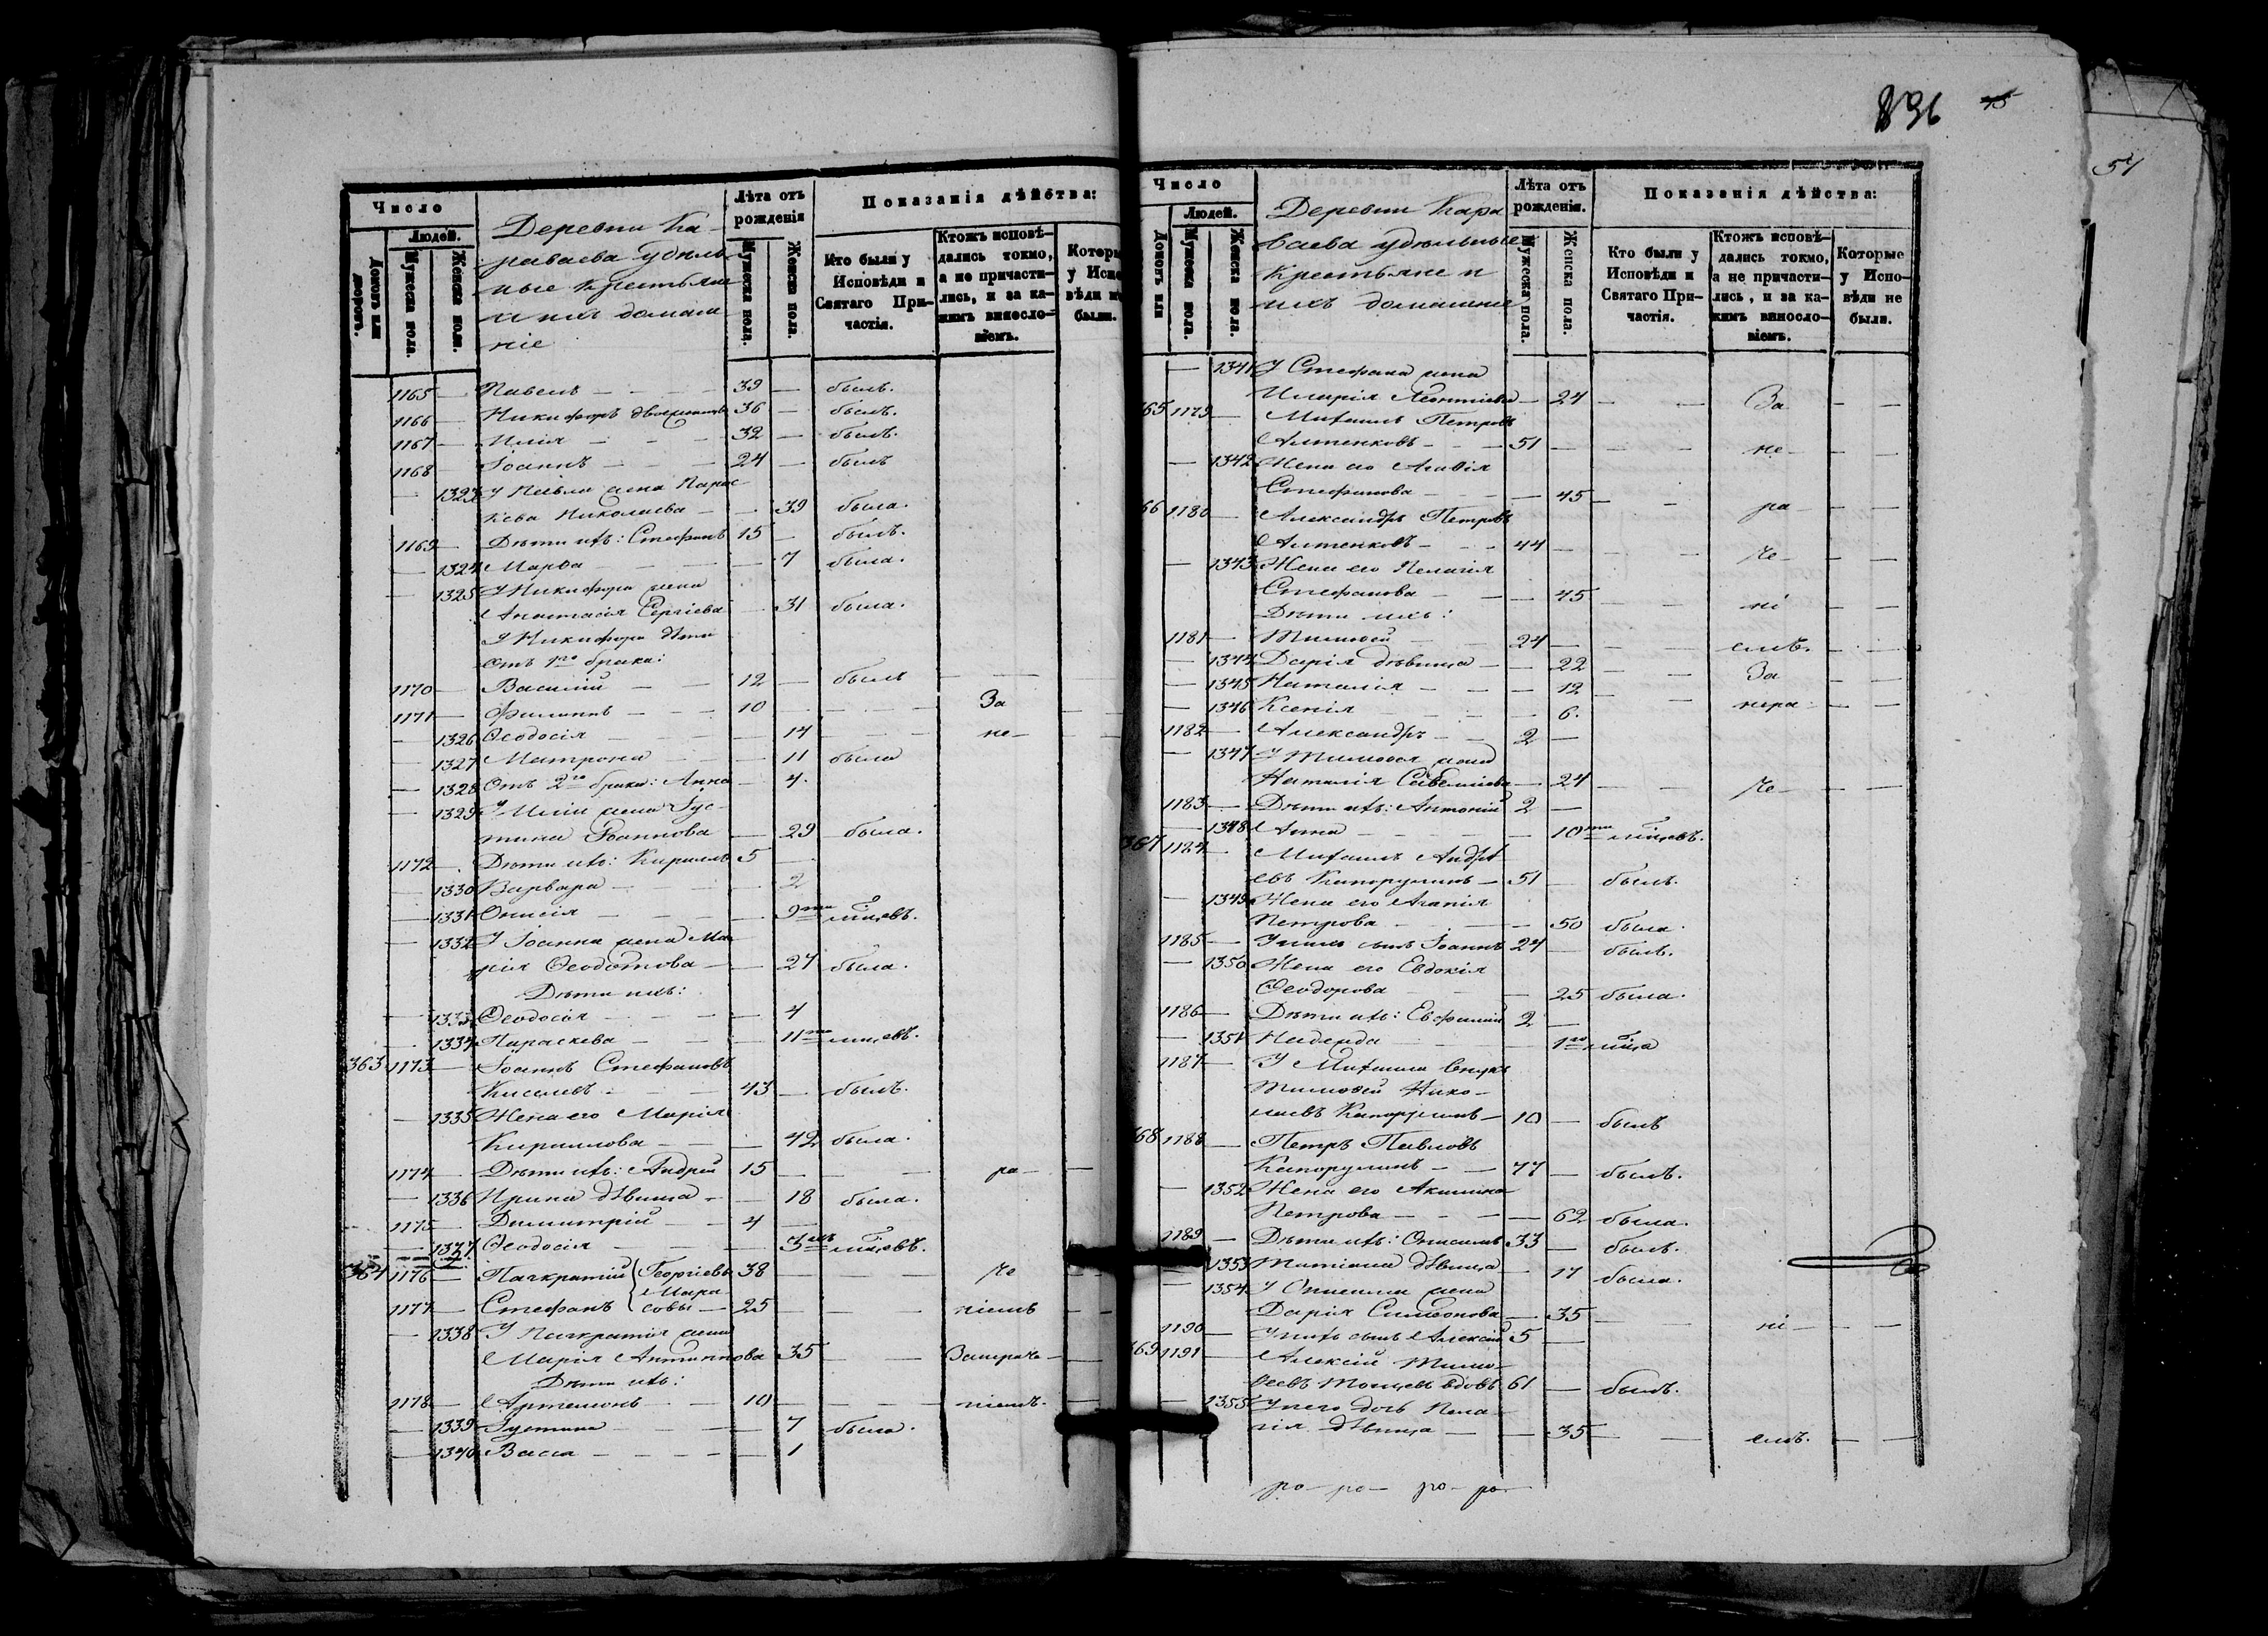 836 15
51
Число
Людей.
Домовъ или дворовъ.
Мужеска пола.
Женска пола.
Деревни Ка-
раваева удѣль-
ные крестьяне
и ихъ домаш
ніе
Лѣта отъ рожденія
Мужеска пола.
Женска пола.
Показанія дѣйства:
Кто были у Исповѣди и Святаго При-частія.
Ктожъ исповѣ-дались токмо, а не причасти-лись, и за ка-кимъ винносло-віемъ.
1165 — Павелъ — 39 — былъ.
1166 — Никифоръ 36 — былъ.
1167 — Илія — 32 — былъ.
1168 — Іоаннъ — 24 — былъ
— 1323 У Павла жена Парас
кева Николаева — 39 была.
1169 — Дѣти ихъ: Стефанъ 15 — былъ.
— 1324 Марѳа — 7 была.
— 1325 У Никифора жена
Анастасія Сергіева — 31 была.
У Никифора дѣти
отъ 1го брака:
1170 — Василій — 12 — былъ
1171 — Филиппъ — 10 — За
— 1326 Ѳеодосія — 14 — не-
— 1327 Матрона — 11 была
— 1328 Отъ 2го брака: Анна — 4.
— 1329 У Иліи жена Іус-
тина Іоаннова — 29 была.
1172 — Дѣти ихъ: Кириллъ 5 —
— 1330 Варвара — 2
— 1331 Онисія — 9ти мцевъ.
— 1332 У Іоанна жена Ма
рія Ѳеодотова — 27 была.
Дѣти ихъ:
— 1333 Ѳеодосія — 4
— 1334 Параскева — 11ти мцевъ.
363 1173 — Іоаннъ Стефановъ
Киселевъ — 43 — былъ.
— 1335 Жена его Марія
Кириллова — 42 была.
1174 — Дѣти ихъ: Андрей 15 — ра-
— 1336 Ирина дѣвица — 18 была.
1175 — Димитрій — 4 —
— 1337 Ѳеодосія — 3хъ мцевъ.
364 1176 — Панкратій Георгіевъ 38 — че
Мара
1177 — Стефанъ совы — 25 — ніемъ
— 1338 У Панкратія жена
Марія Антиппова 35 — Занераче-
Дѣти ихъ:
1178 — Артемонъ — 10 — ніемъ.
— 1339 Іустина — 7 была.
— 1340 Васса — 1
Число
Людей.
Домовъ или
Мужеска пола.
Женска пола.
Деревни Кара
ваева удѣльные
крестьяне и
ихъ домашніе
Лѣта отъ рожденія.
Мужеска пола.
Женска пола.
Показанія дѣйства:
Кто были у Исповѣди и Святаго При-частія.
Ктожъ исповѣ-дались токмо, а не причасти-лись, и за ка-кимъ винносло-віемъ.
Которые у Испо-вѣди не были.
— 1341 У Стефана жена
Иларія Леонтіева — 24 — За — —
365 1179 — Михаилъ Петровъ
Алтенковъ — 51 — не — —
— 1342 Жена его Агаѳія
Стефанова — 45 — ра — —
66 1180 — Александръ Петровъ
Алтенковъ — 44 — че — —
— 1343 Жена его Пелагія
Стефанова — 45 — ні — —
Дѣти ихъ:
1181 — Тимоѳей — 24 — емъ.
— 1344 Дарія дѣвица — 22 — За
— 1345 Наталія — 12 — нера
— 1346 Ксенія — 6.
1182 — Александръ — 2 —
— 1347 У Тимоѳея жена
Наталія Савелліева — 24 — че — —
1183 — Дѣти ихъ: Антоній 2 —
— 1348 Анна — 10ти мцевъ.
367 1184 — Михаилъ Андре
евъ Капорулинъ — 51 — былъ.
— 1349 Жена его Агапія
Петрова — 50 была.
1185 — У нихъ сынъ Іоаннъ 24 — былъ.
— 1350 Жена его Евдокія
Ѳеодорова — 25 была.
1186 — Дѣти ихъ: Евфимій 2 —
— 1351 Надежда — 1го мца
1187 — У Михаила внукъ
Тимоѳей Нико-
лаевъ Капорулинъ — 10 — былъ
68 1188 — Петръ Павловъ
Капорулинъ — 77 — былъ.
— 1352 Жена его Акилина
Петрова — 62 была.
1189 — Дѣти ихъ: Онисимъ 33 — былъ.
— 1353 Татіана дѣвица — 17 была.
— 1354 У Онисима жена
Дарія Симеонова — 35 — ні — —
1190 — У нихъ сынъ Алексій 5 —
69 1191 — Алексій Тимо-
ѳеевъ вдовъ 61 — былъ.
— 1355 У него дочь Пела-
гія дѣвица — 35 — емъ. — —
ра- ра- ра- ра-